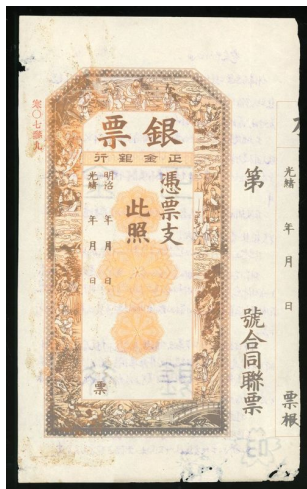 銀票
正金銀行
憑票支
此照
明治 年 月 日
光緒 年 月 日
票
第 號合同聯票
光緒 年 月 日
票根